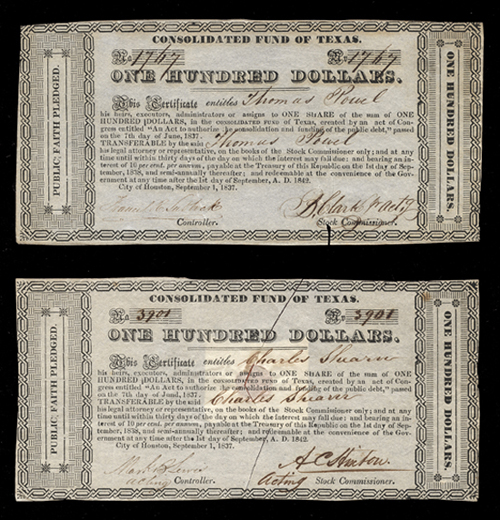 CONSOLIDATED FUND OF TEXAS.
No 1767 No 1767
ONE HUNDRED DOLLARS.
PUBLIC FAITH PLEDGED.
This Certificate entitles Thomas Powel
his heirs, executors, administrators or assigns to ONE SHARE of the sum of ONE
HUNDRED DOLLARS, in the CONSOLIDATED FUND of Texas, created by an act of Con-
gress entitled "An Act to authorize the consolidation and funding of the public debt," passed
on the 7th day of June, 1837.
TRANSFERABLE by the said Thomas Powel
his legal attorney or representative, on the books of the Stock Commissioner only; and at any
time until within thirty days of the day on which the interest may fall due: and bearing an in-
terest of 10 per cent. per annum, payable at the Treasury of this Republic on the 1st day of Sep-
tember, 1838, and semi-annually thereafter; and redeemable at the convenience of the Gov-
ernment at any time after the 1st day of September, A. D. 1842.
City of Houston, September 1, 1837.
Controller.
D. Clark
Stock Commissioner.
ONE HUNDRED DOLLARS.
CONSOLIDATED FUND OF TEXAS.
No 3901 No 3901
ONE HUNDRED DOLLARS.
PUBLIC FAITH PLEDGED.
This Certificate entitles Charles Shearer
his heirs, executors, administrators or assigns to ONE SHARE of the sum of ONE
HUNDRED DOLLARS, in the CONSOLIDATED FUND of Texas, created by an act of Con-
gress entitled "An Act to authorize the consolidation and funding of the public debt," passed
on the 7th day of June, 1837.
TRANSFERABLE by the said Charles Shearer
his legal attorney or representative, on the books of the Stock Commissioner only; and at any
time until within thirty days of the day on which the interest may fall due: and bearing an in-
terest of 10 per cent. per annum, payable at the Treasury of this Republic on the 1st day of Sep-
tember, 1838, and semi-annually thereafter; and redeemable at the convenience of the Gov-
ernment at any time after the 1st day of September, A. D. 1842.
City of Houston, September 1, 1837.
acting Controller.
A C Hinton
acting Stock Commissioner.
ONE HUNDRED DOLLARS.